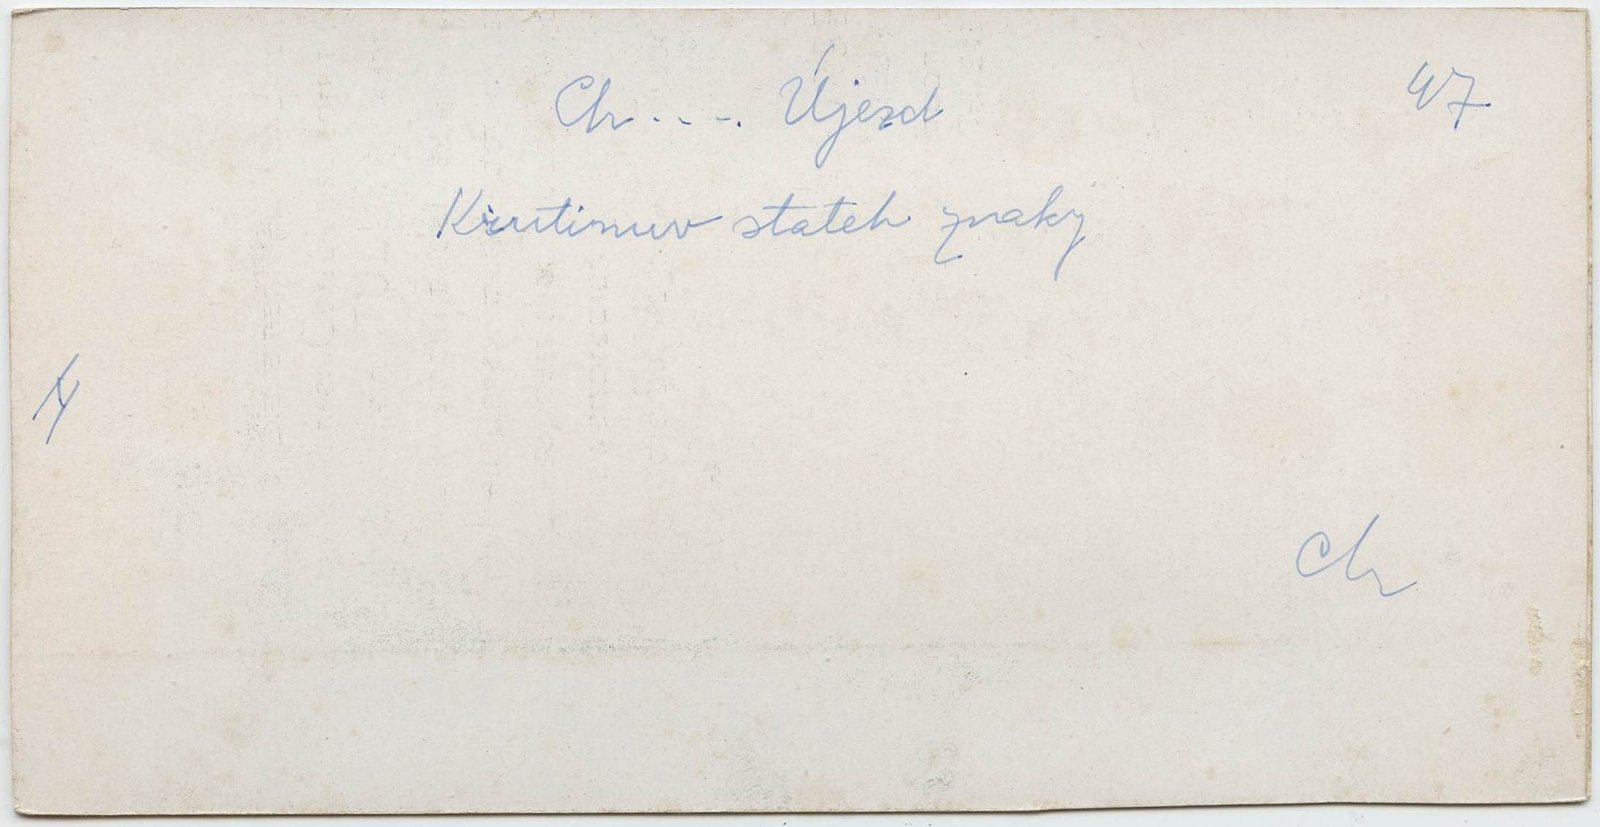 Ch.... Újezd
47
Křutinuv statek znaky
Ch